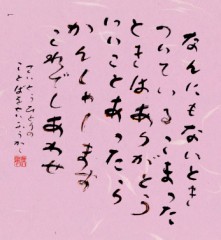 なんにもないとき
ついているこまった
ときはありがとう
いいことあったら
かんしゃします
これぞしあわせ
さいとうひとりの
ことばを